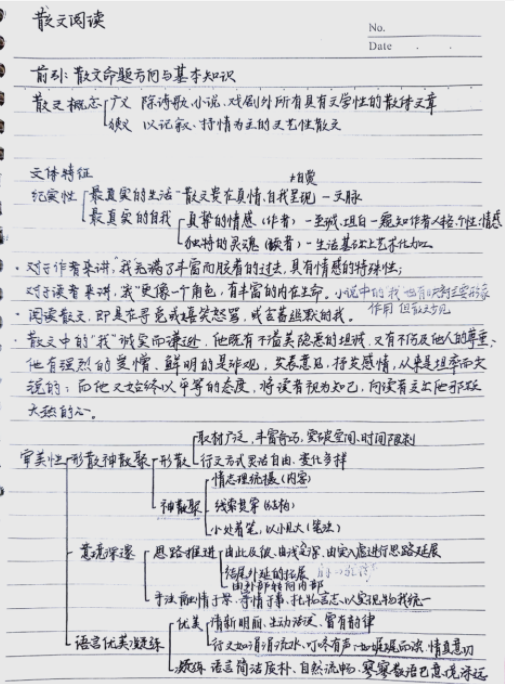 散文阅读
No.
Date
前引：散文命题方向与基本知识
散文概念 广义 除诗歌、小说、戏剧外所有具有文学性的散体文章
狭义 以记叙、抒情为主的文艺性散文
文体特征
纪实性 最真实的生活—散文贵在真情、自我呈现—文脉
最真实的自我 真挚的情感（作者）—至诚、坦白—窥知作者人格、个性、情感
独特的灵魂（读者）—生活基础上艺术化加工
·对于作者来讲，"我"充满了丰富而胶着的过去，具有情感的特殊性；
对于读者来讲，"我"更像一个角色，有丰富的内在生命。小说中的"我"也有
作用 但散文
·阅读散文，即是在寻觅或嬉笑怒骂，或含蓄幽默的我。
·散文中的"我"诚实而谦逊，他既有不溢美隐恶的坦诚，又有不伤及他人的尊重，
他有强烈的爱憎，鲜明的是非观，发表意见，抒发感情，从来是坦率而交
说的；而他又始终以平等的态度，将读者视为知己，向读者交出他那颗
火热的心。
审美性 形散神聚 形散 取材广泛，丰富奇巧，突破空间、时间限制
行文方式灵活自由、变化多样
神聚 情志理统摄（内容）
线索贯穿（结构）
小处着笔，以小见大（笔法）
意境深邃 思路推进 由此及彼、由浅入深、由实入虚进行思路延展
结尾外延的拓展
由外部转向内部
手法 融情于景、寄情于事、托物言志，以实现物我统一
语言优美凝练 优美 清新明丽、生动活泼、富有韵律
行文如涓涓流水、叮咚有声，如娓娓而谈，情真意切
凝练 语言简洁质朴、自然流畅、寥寥数语已意境深远